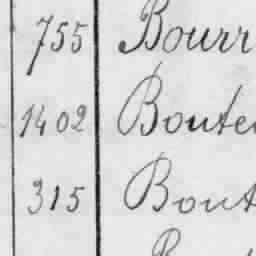 755 Bourr
1402 Boute
315 Bout